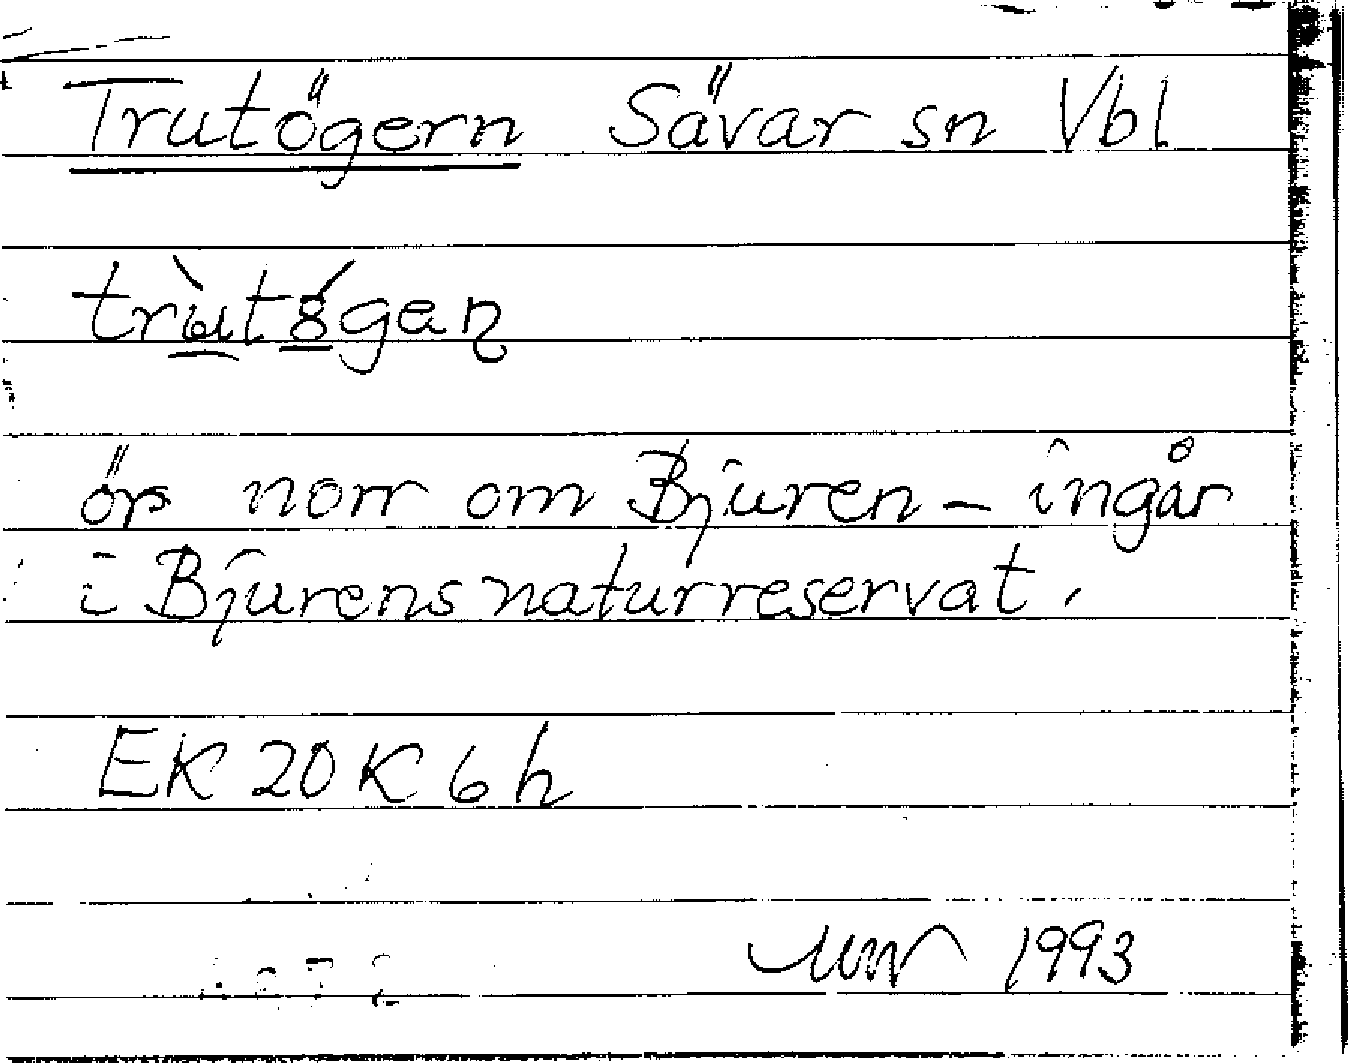 Trutögern Sävar sn Vbl
örs norr om Bjuren – ingår
i Bjurens naturreservat.
EK 20 K 6 h
1993